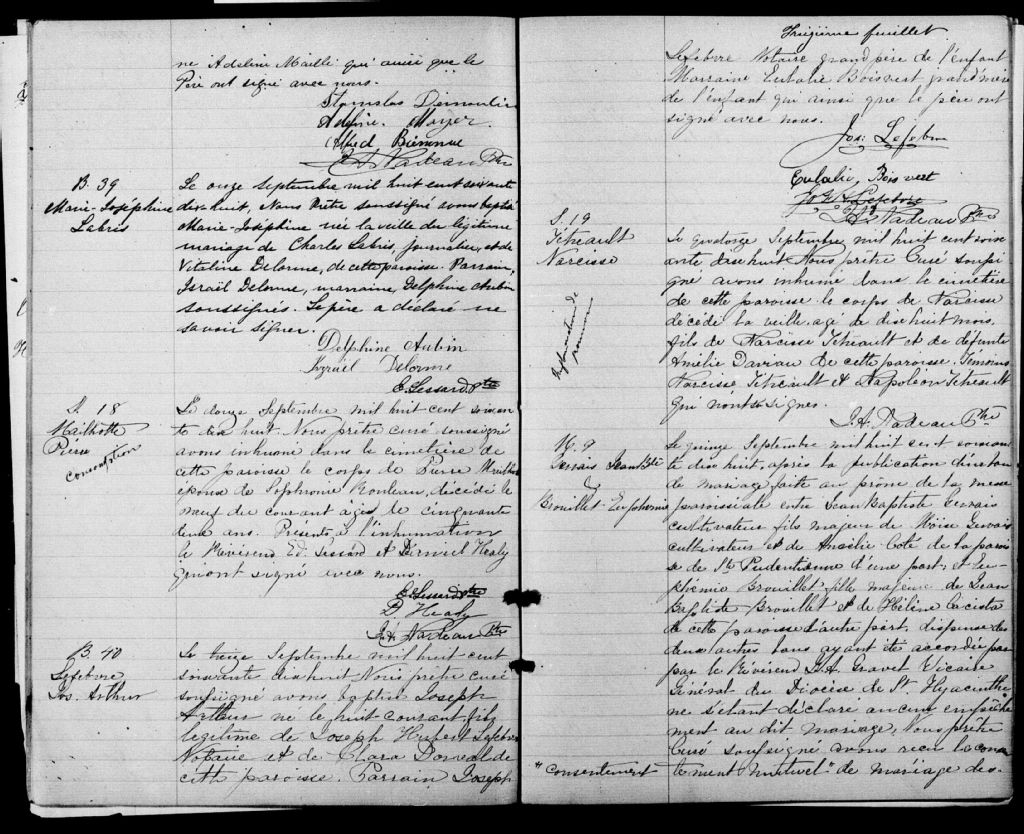 ne Adeline Maillé qui ainsi que le
Père ont signé avec nous.
Stanislas Demoulin
Adeline Mayer
Alfred Bienvenue
J. A. Nadeau Ptre
B. 39
Marie-Joséphine
Labris
Le onze septembre mil huit cent soixante
dix-huit, Nous Prêtre soussigné avons baptisé
Marie-Joséphine née la veille du légitime
mariage de Charles Labris, journalier, et de
Vitaline Delorme, de cette paroisse. Parrain,
Israël Delorme, marraine, Delphine Aubin
soussignés. Le père a déclaré ne
savoir signer.
Delphine Aubin
Israël Delorme
E. Lessard Ptre
S. 18
Mailhotte
Pierre
Consomption
Le douze Septembre mil huit cent soixan
te dix huit. Nous prêtre curé soussigné
avons inhumé dans le cimetière de
cette paroisse le corps de Pierre
époux de Sophronie Rouleau, décédé le
neuf du courant âgé de cinquante
ans. Présents à l'inhumation
le Révérend Ed. Lessard et Daniel Healy
qui ont signé avec nous.
E. Lessard Ptre
D. Healy
J. A. Nadeau Ptre
B 40
Lefebvre
Jos. Arthur
Le treize Septembre mil huit cent
soixante dix huit Nous prêtre curé
soussigné avons baptisé Joseph
Arthur né le huit courant fils
légitime de Joseph Hubert Lefebvre
Notaire et de Clara Dorval de
cette paroisse. Parrain Joseph
feuillet
Lefebvre Notaire grand père de l'enfant
Marraine Eulalie Boisvert grand'mère
de l'enfant qui ainsi que le père ont
signé avec nous.
Jos. Lefebvre
Eulalie Boisvert
Lefebvre
J. A. Nadeau Ptre
S. 19
Tétreault
Narcisse
Inflammation de
Le quatorze Septembre mil huit cent soix
ante dix huit Nous prêtre Curé soussi
gné avons inhumé dans le cimetière
de cette paroisse le corps de Narcisse
décédé la veille, agé de dix huit mois,
fils de Narcisse Tétreault et de défunte
Amélie Davian de cette paroisse. Témoins
Narcisse Tétreault et Napoléon Tétreault
qui n'ont signer.
J. A. Nadeau Ptre
M. 9
Gervais Jean Bte
&
Brouillet Euphémie
Le quinze Septembre mil huit cent soixan
te dix huit, après la publication d'un ban
de mariage faite au prône de la messe
paroissiale entre Jean Baptiste Gervais
cultivateur fils majeur de Moïse Gervais
cultivateur et de Amélie Coté de la parois
se de Ste Pudentienne d'une part, et Eu-
phémie Brouillet fille majeure de Jean
Baptiste Brouillet et de Hélène
de cette paroisse d'autre part, dispense des
deux autres bans ayant été accordée par
par le Révérend J. A. Gravel Vicaire
Général du Diocèse de St Hyacinthe
ne s'étant déclaré aucun empêche
ment au dit mariage, Nous prêtre
Curé soussigné avons reçu
"Consentement
mutuel" de mariage des